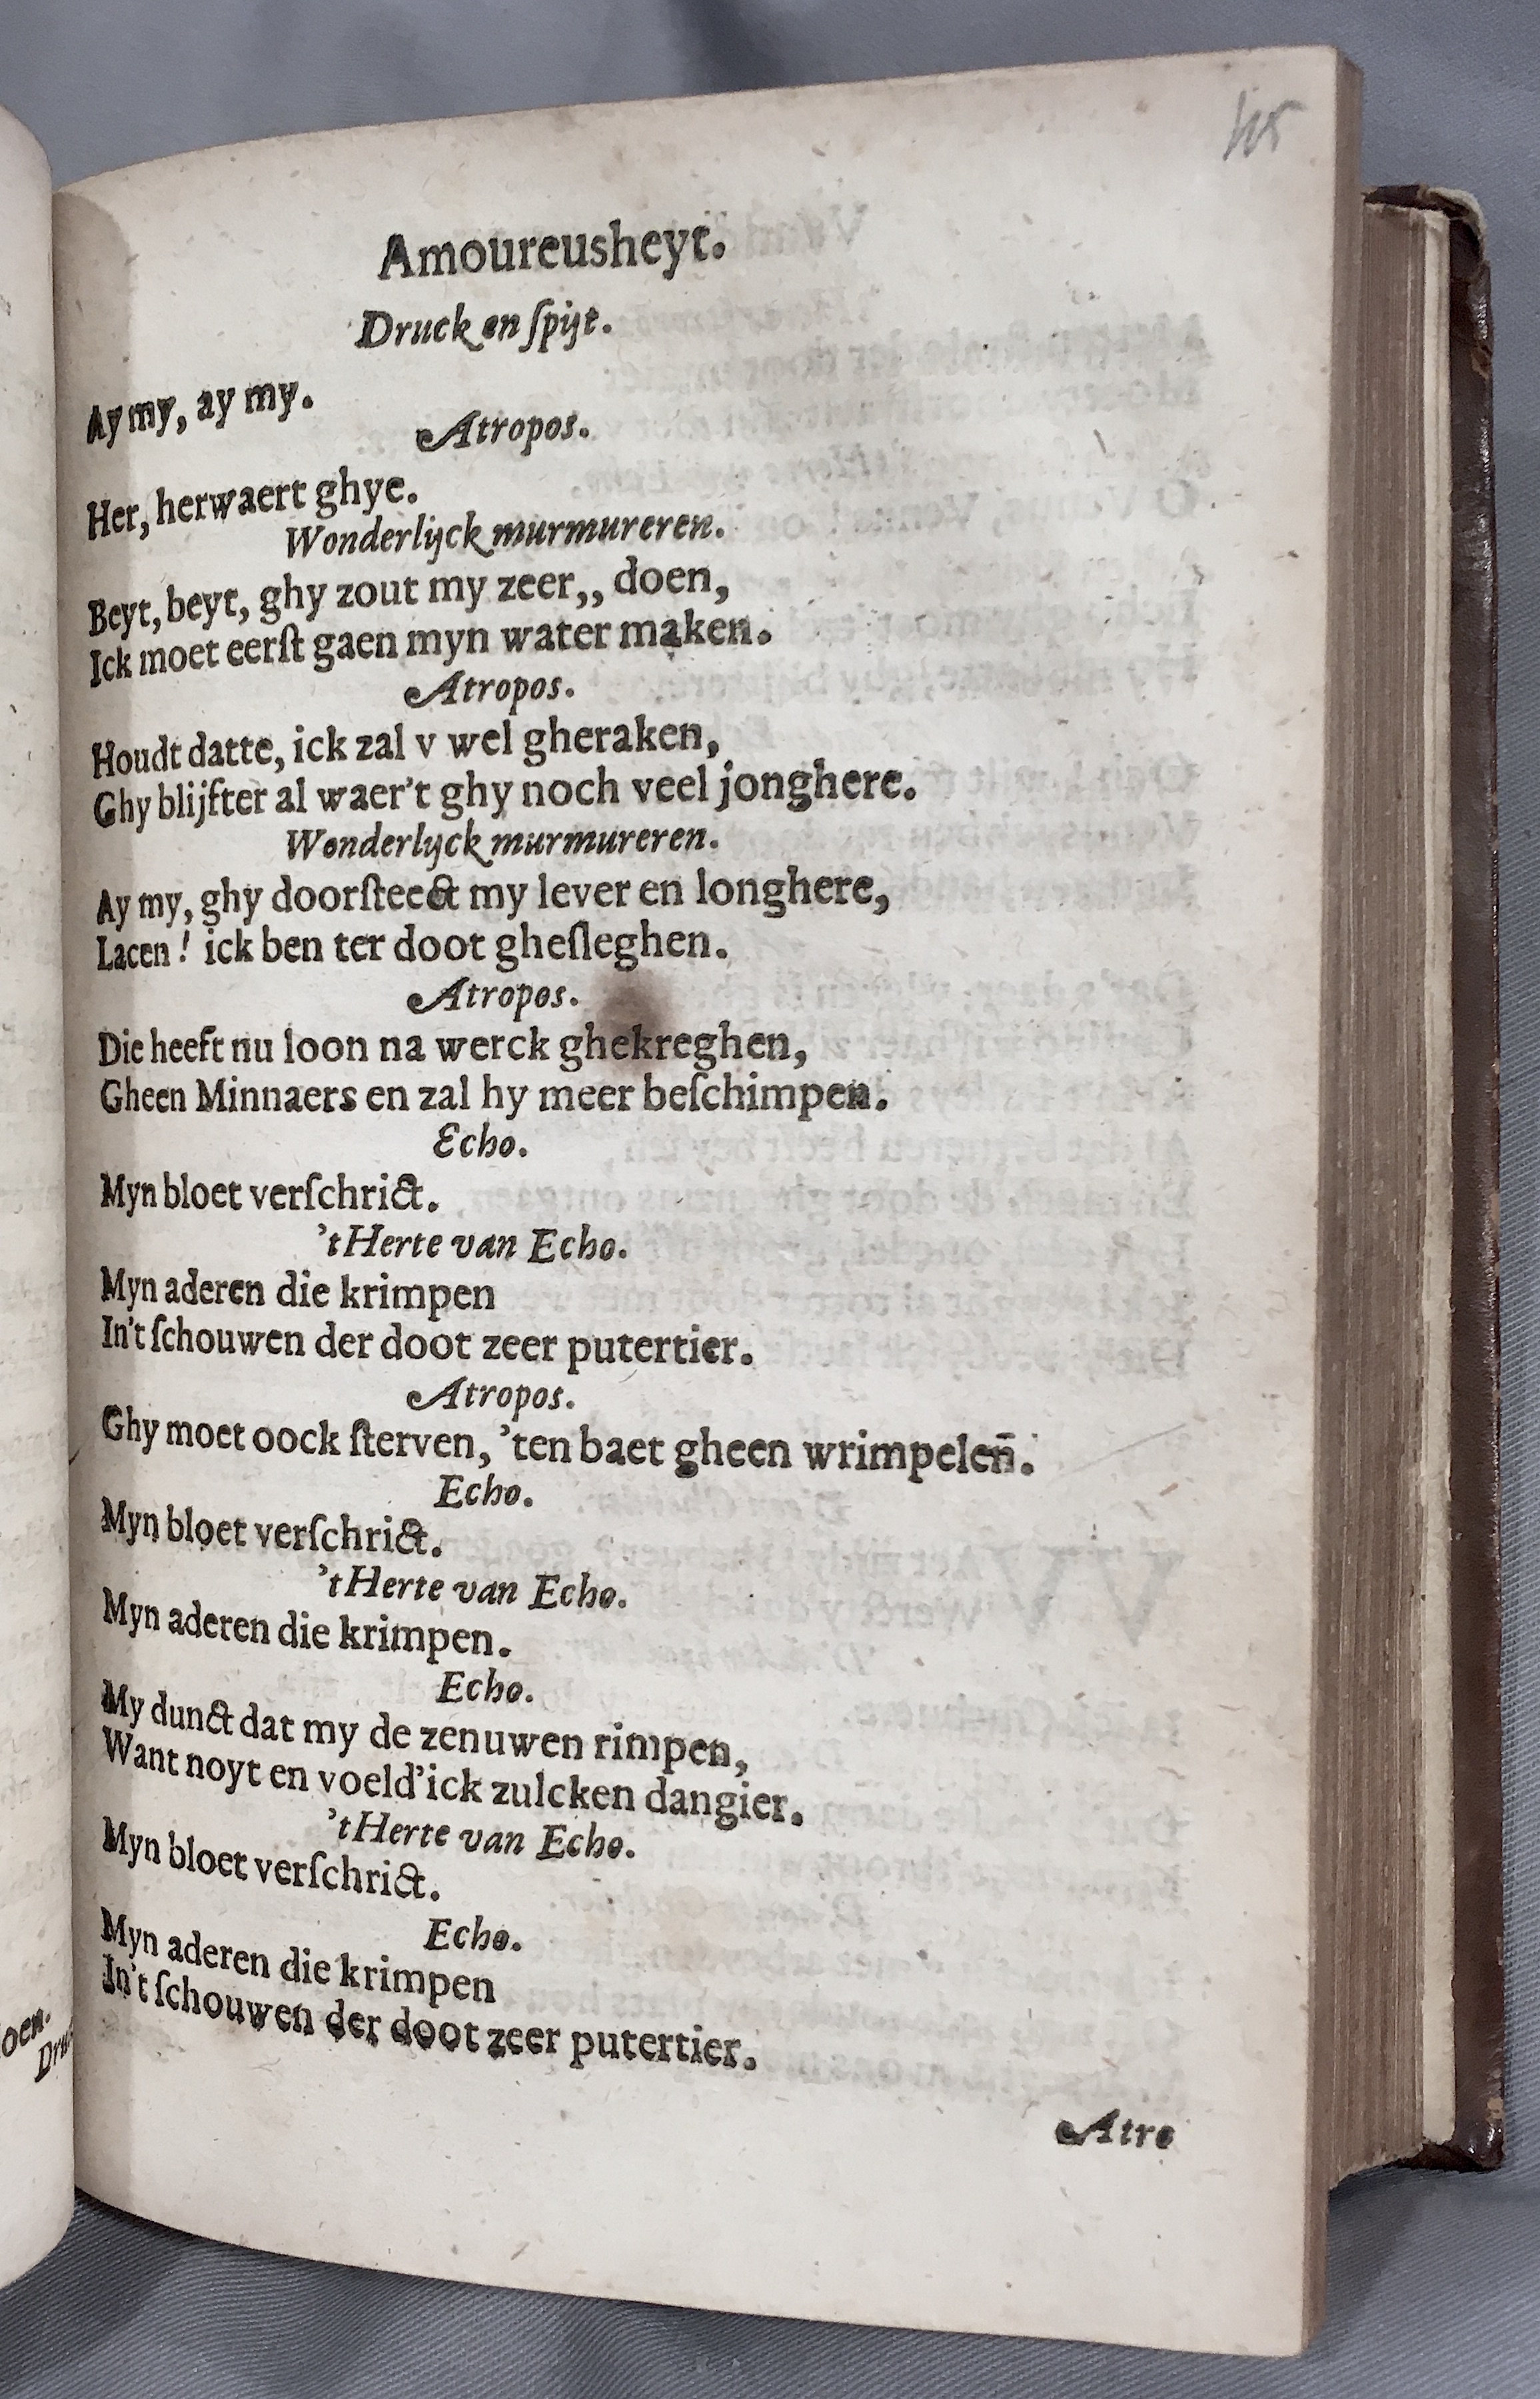 Amoureusheyt.
Druck en ſpijt.
Ay my, ay my.
Atropos.
Her, herwaert ghye.
Wonderlijck murmureren.
Beyt, beyt, ghy zout my zeer,, doen,
Ick moet eerſt gaen myn water maken.
Atropos.
Houdt datte, ick zal v wel gheraken,
Ghy blijfter al waer't ghy noch veel jonghere.
Wonderlijck murmureren.
Ay my, ghy doorſteect my lever en longhere,
Lacen! ick ben ter doot gheſleghen.
Atropos.
Die heeft nu loon na werck ghekreghen,
Gheen Minnaers en zal hy meer beſchimpen.
Echo.
Myn bloet verſchrict.
't Herte van Echo.
Myn aderen die krimpen
In't ſchouwen der doot zeer putertier.
Atropos.
Ghy moet oock ſterven, 'ten baet gheen wrimpelen̄.
Echo.
Myn bloet verſchrict.
't Herte van Echo.
Myn aderen die krimpen.
Echo.
My dunct dat my de zenuwen rimpen,
Want noyt en voeld'ick zulcken dangier.
't Herte van Echo.
Myn bloet verſchrict.
Echo.
Myn aderen die krimpen
In't ſchouwen der doot zeer putertier.
Atro